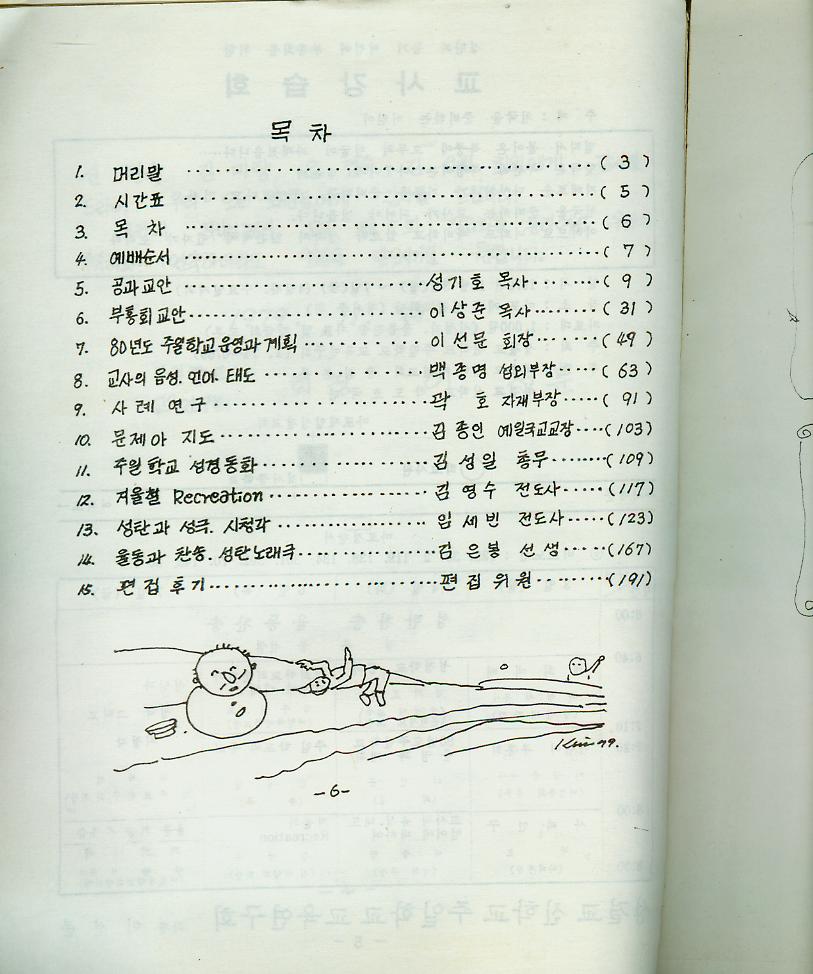 목 차
1. 머리말 ................................................ ( 3 )
2. 시간표 ................................................ ( 5 )
3. 목 차 ................................................ ( 6 )
4. 예배순서 ................................................ ( 7 )
5. 공과교안 .............................. 성기호 목사 ......... ( 9 )
6. 부흥회교안 .............................. 이상준 목사 ........ ( 31 )
7. 80년도 주일학교운영과 계획 ................ 이선문 회장 ...... ( 49 )
8. 교사의 음성.언어.태도 .................... 백종명 섭외부장 ..... ( 63 )
9. 사 례 연 구 .......................... 곽 호 자재부장 ..... ( 91 )
10. 문제아 지도 .......................... 김종인 예일국교교장 .... (103)
11. 주일학교 성경동화 .................... 김성일 총무 ....... (109)
12. 겨울철 Recreation .................... 김영수 전도사 ..... (117)
13. 성탄과 성극.시청각 .................... 임세빈 전도사 ..... (123)
14. 율동과 찬송.성탄노래극 ................ 김은봉 선생 ..... (167)
15. 편집후기 .............................. 편집위원 ........ (191)
Kim 79.
-6-